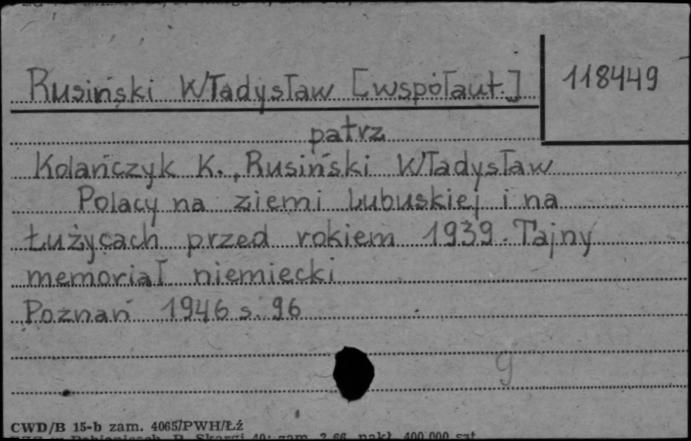 Rusiński Władysław [współaut.]
118449
patrz
Kolańczyk K., Rusiński Władysław
Polacy na ziemi Lubuskiej i na
Łużycach przed rokiem 1939. Tajny
memoriał niemiecki
Poznań 1946 s. 96
g
CWD/B 15-b zam. 4065/PWH/Łź